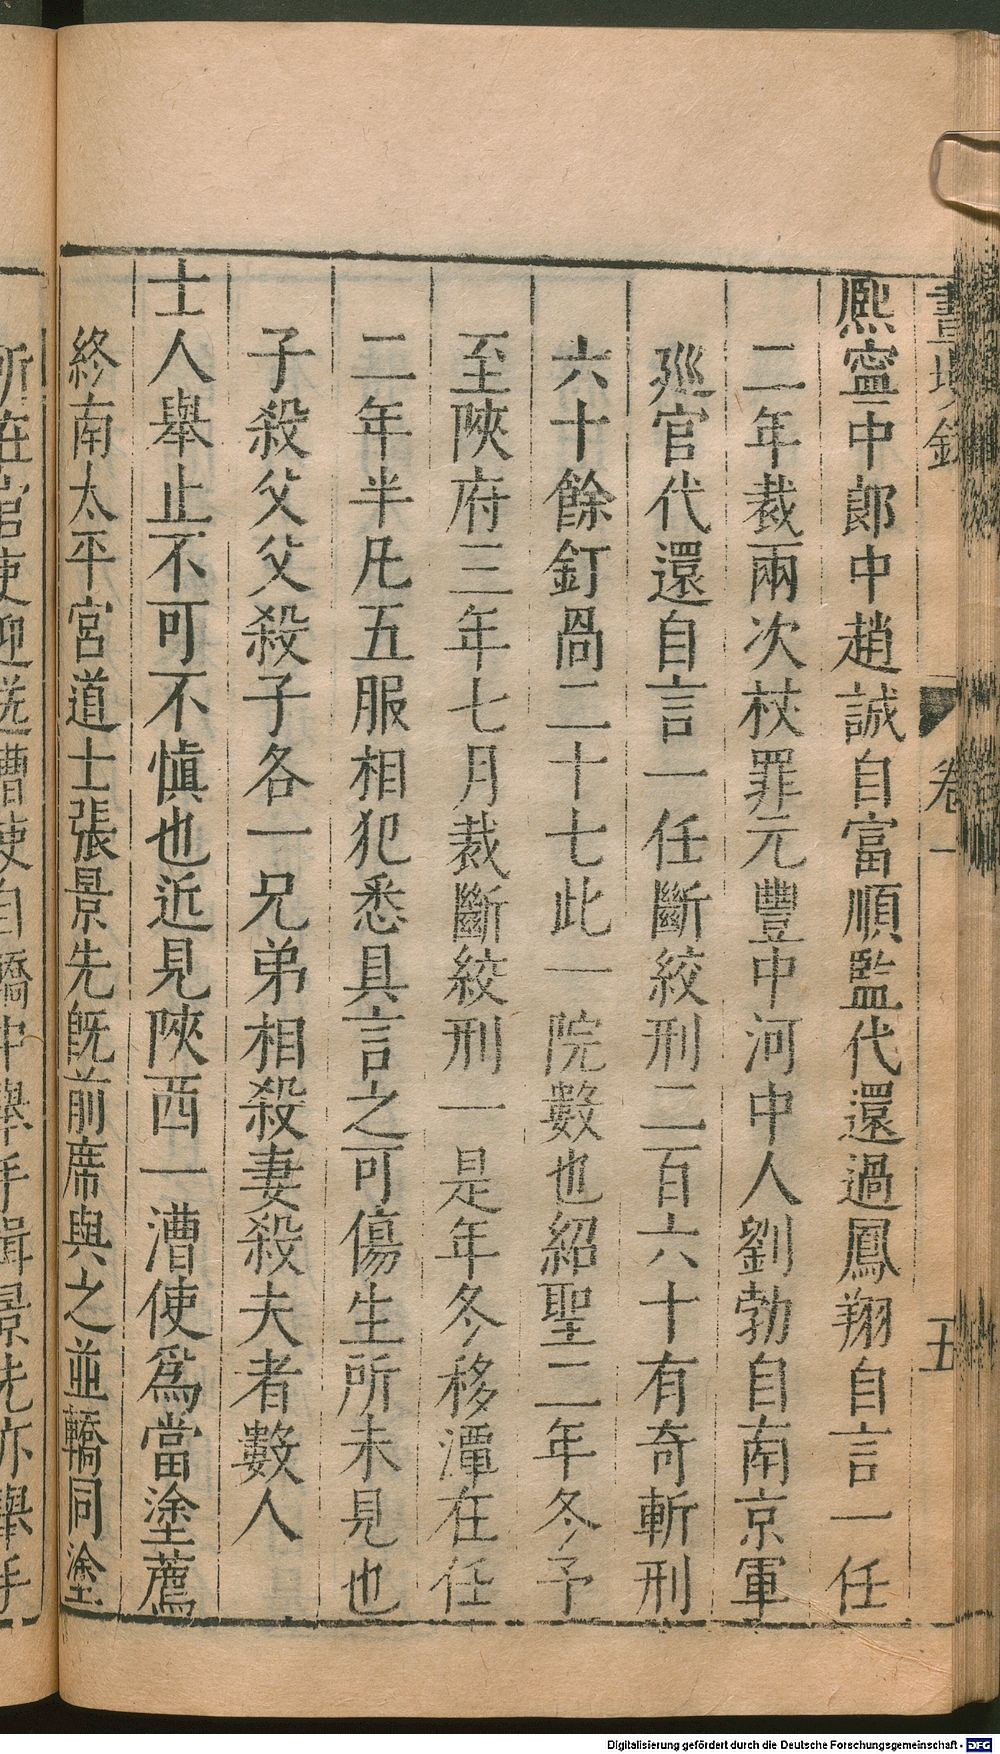 畫墁錄 卷一 五
熙寧中郎中趙誠自富順監代還過鳳翔自言一任
二年裁兩次杖罪元豐中河中人劉勃自南京軍
廵官代還自言一任斷絞刑二百六十有奇斬刑
六十餘釘咼二十七此一院數也紹聖二年冬予
至陝府三年七月裁斷絞刑一是年冬移潭在任
二年半凡五服相犯悉具言之可傷生所未見也
子殺父父殺子各一兄弟相殺妻殺夫者數人
士人舉止不可不慎也近見陝西一漕使爲當塗薦
終南太平宮道士張景先旣前席與之並轎同塗
所在官吏迎送漕使自轎中舉手揖景先亦舉手
Digitalisierung gefördert durch die Deutsche Forschungsgemeinschaft - DFG